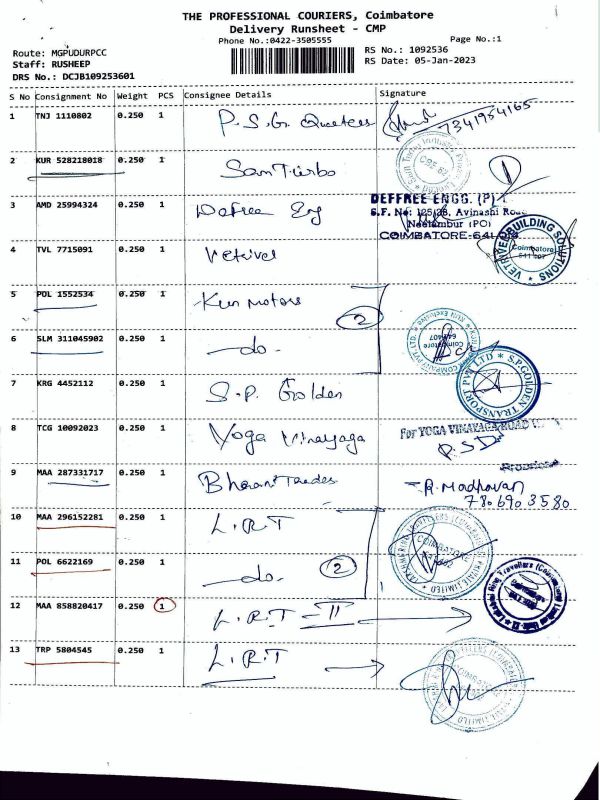 THE PROFESSIONAL COURIERS, Coimbatore
Delivery Runsheet - CMP
Phone No.:0422-3505555
Page No.:1
Route: MGPUDURPCC
RS No.: 1092536
Staff: RUSHEEP
RS Date: 05-Jan-2023
DRS No.: DCJB109253601
S No Consignment No Weight PCS Consignee Details Signature
1 TNJ 1110802 0.250 1 P.S.G. 7341954165
2 KUR 528218018 0.250 1 San Turbo
3 AMD 25994324 0.250 1 DEFFREE ENGG. (P)
S.F. No: 125/2B, Avinashi Road
Neelambur (PO)
COIMBATORE-641
4 TVL 7715091 0.250 1 Vetrivel VETRIVEL BUILDING SOLUTIONS Coimbatore
5 POL 1552534 0.250 1 Kun Motors 2
6 SLM 311045902 0.250 1 do. Coimbatore 641407
7 KRG 4452112 0.250 1 S.P. Golden S.P.GOLDEN TRANSPORT PVT LTD
8 TCG 10092023 0.250 1 Yoga Vinayaga For YOGA VINAYAGA ROAD
P.SD
Proprietor
9 MAA 287331717 0.250 1 Bharani Trades R. Madhavan
7806903580
10 MAA 296152281 0.250 1 L.R.T COIMBATORE
11 POL 6622169 0.250 1 do. 2
12 MAA 858820417 0.250 1 L.R.T - II
13 TRP 5804545 0.250 1 L.R.T